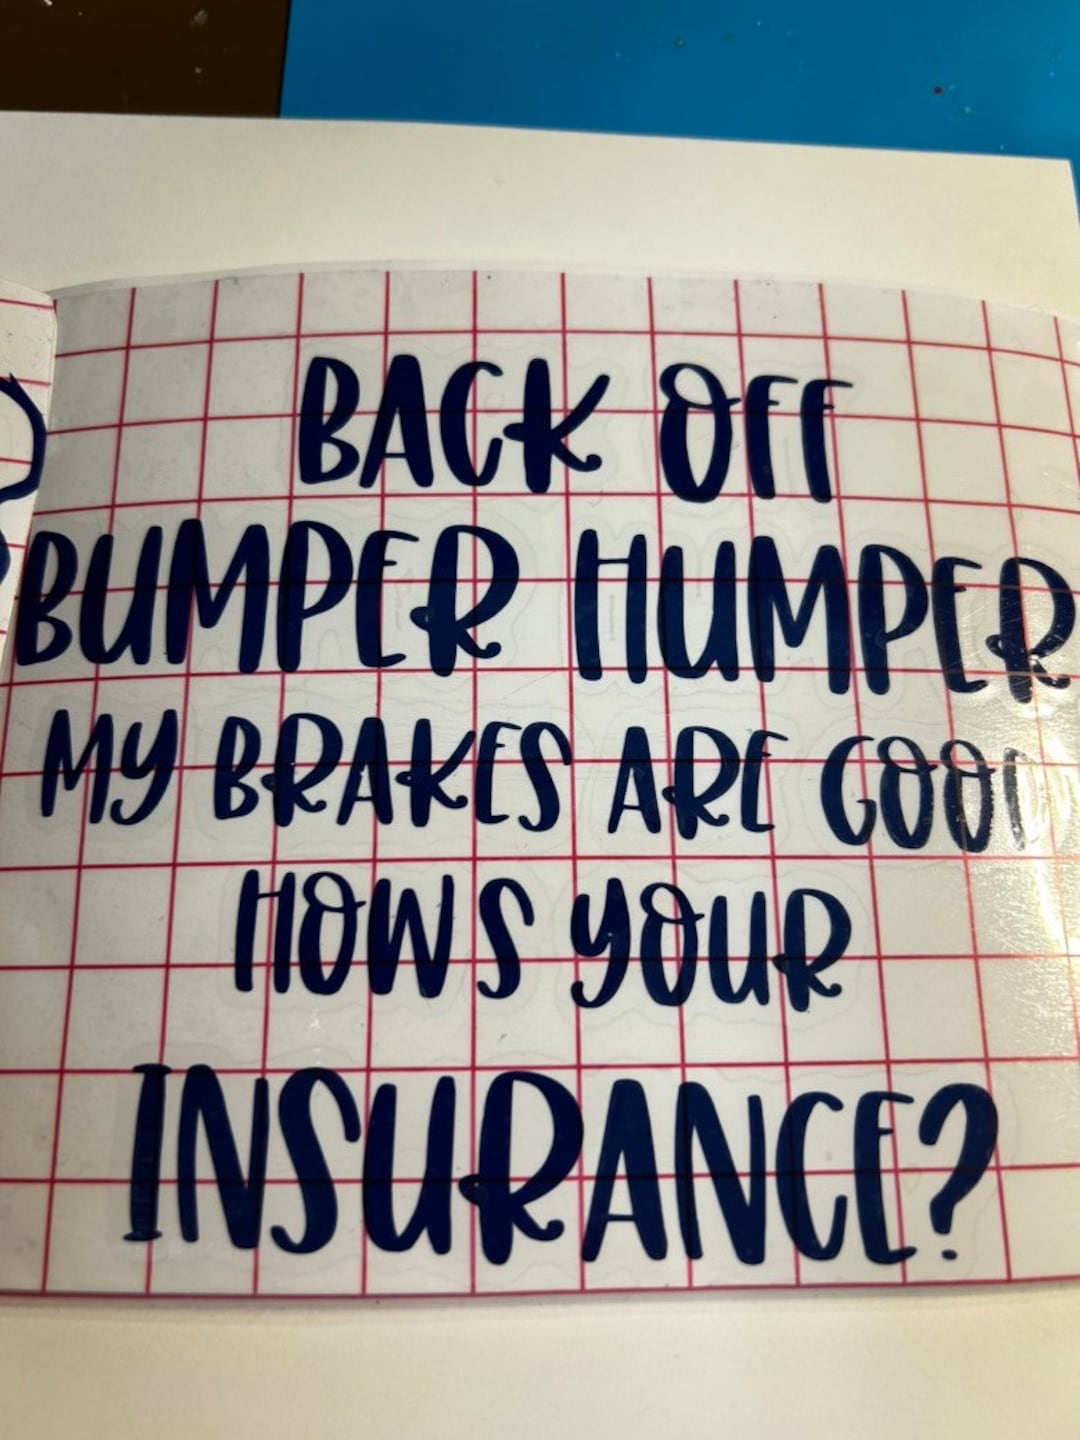 BACK OFF
BUMPER HUMPER
MY BRAKES ARE GOOD
HOWS YOUR
INSURANCE?